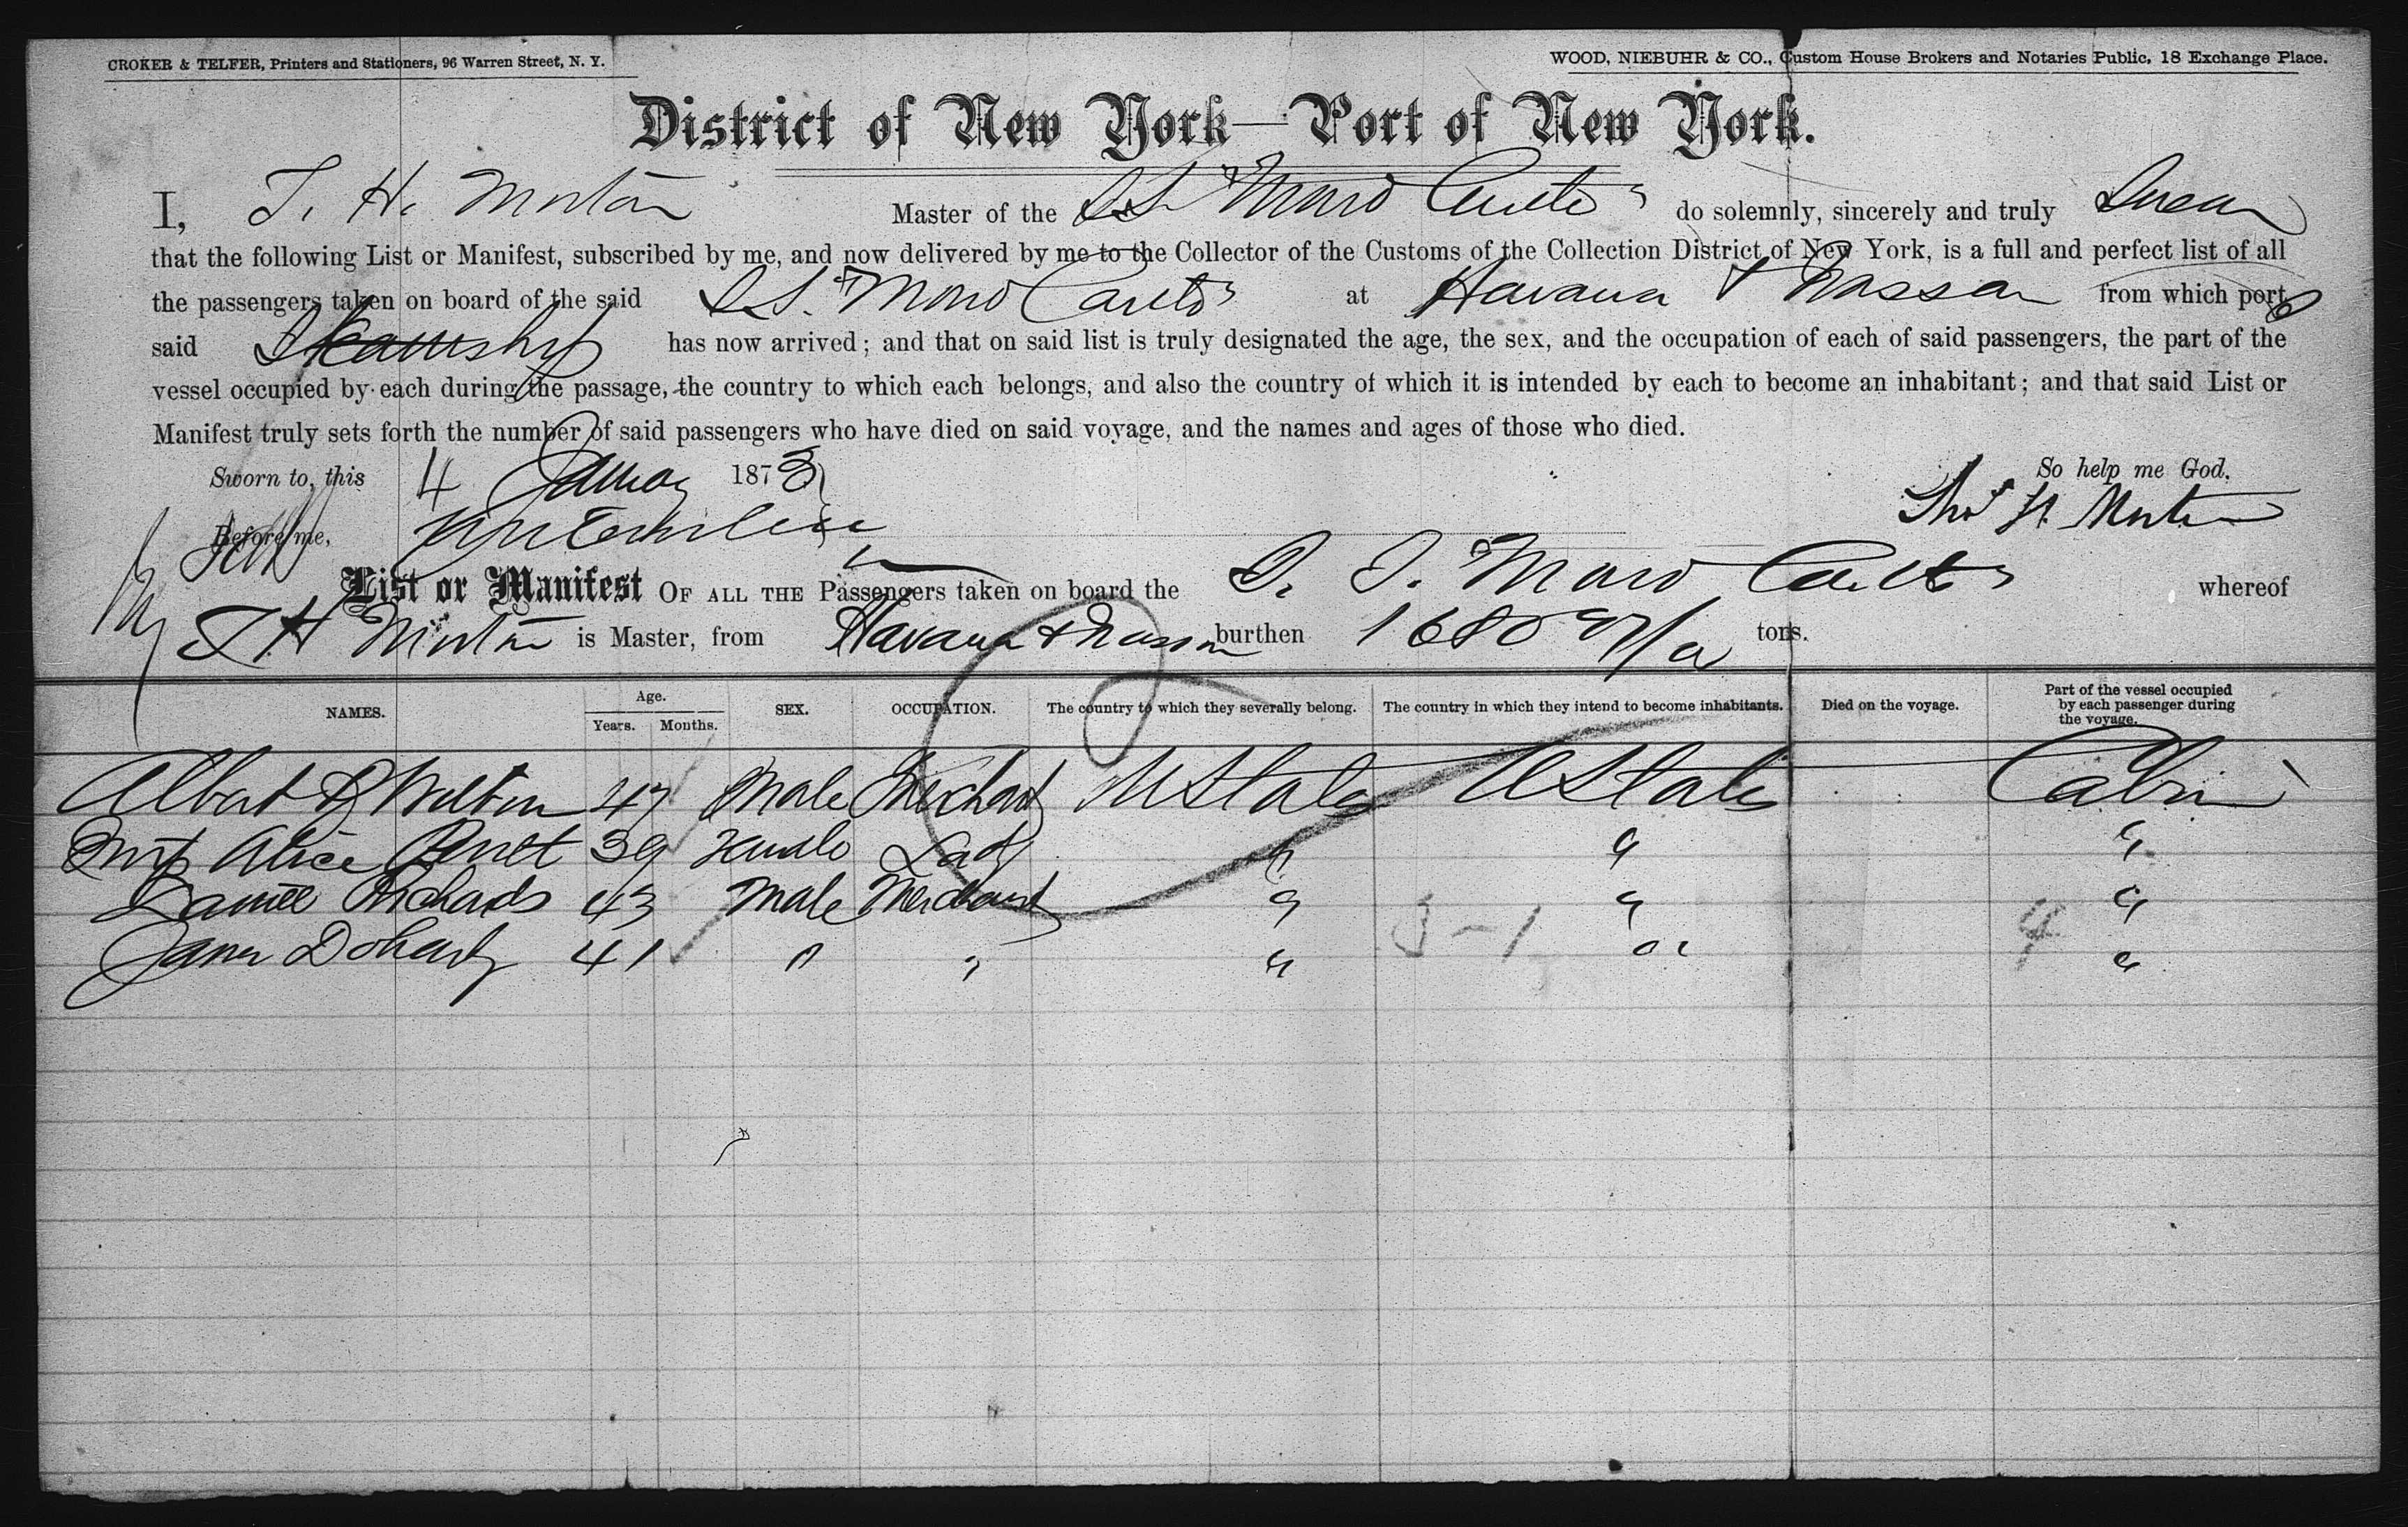 CROKER & TELFER, Printers and Stationers, 96 Warren Street, N. Y.
WOOD, NIEBUHR & CO., Custom House Brokers and Notaries Public, 18 Exchange Place.
District of New York—Port of New York.
I, T. H. Morton Master of the SS "Morro Castle" do solemnly, sincerely and truly Swear
that the following List or Manifest, subscribed by me, and now delivered by me to the Collector of the Customs of the Collection District of New York, is a full and perfect list of all
the passengers taken on board of the said SS. "Morro Castle" at Havana & Nassau from which port
said Steamship has now arrived; and that on said list is truly designated the age, the sex, and the occupation of each of said passengers, the part of the
vessel occupied by each during the passage, the country to which each belongs, and also the country of which it is intended by each to become an inhabitant; and that said List or
Manifest truly sets forth the number of said passengers who have died on said voyage, and the names and ages of those who died.
Sworn to, this 4 January 1873
So help me God,
Thos H. Morton
Before me,
List or Manifest OF ALL THE Passengers taken on board the S. S. "Morro Castle" whereof
T H Morton is Master, from Havana & Nassau burthen 1680 tons.
NAMES. Age. Years. Months. SEX. OCCUPATION. The country to which they severally belong. The country in which they intend to become inhabitants. Died on the voyage. Part of the vessel occupied by each passenger during the voyage.
Albert 47 Male Merchant U States U States Cabin
Alice 39 Female Lady " " "
Daniel Richards 43 Male Merchant " " "
James Doherty 41 " " " " "
4